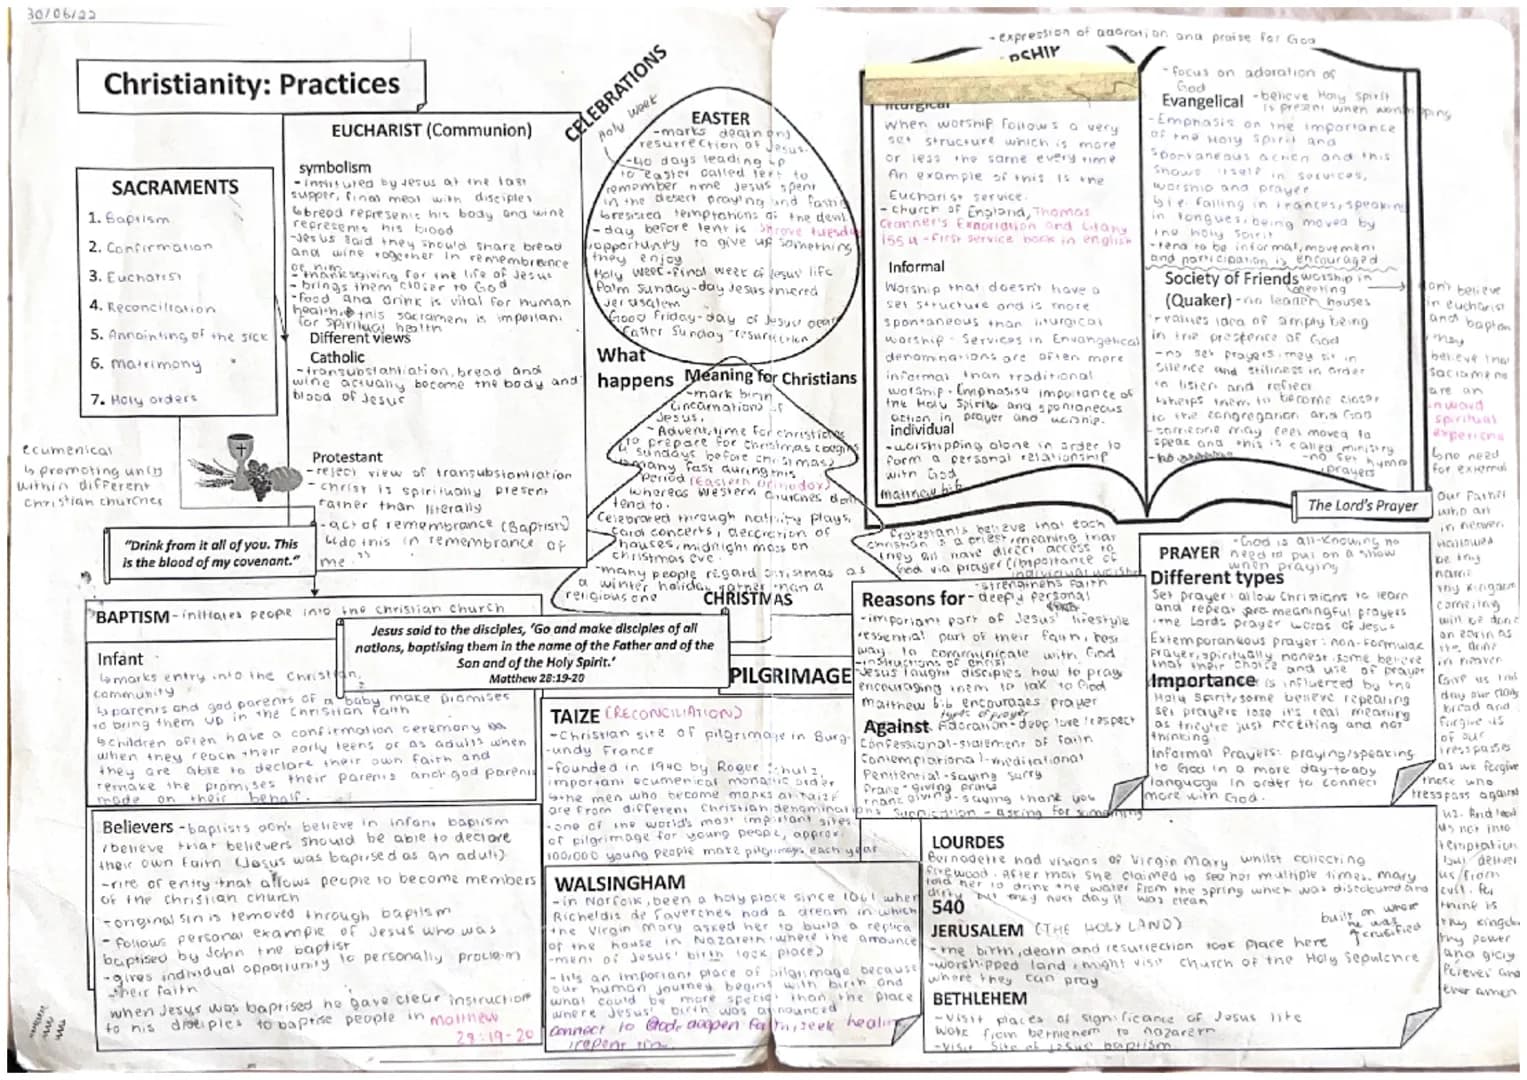 30/06/22
Christianity: Practices
SACRAMENTS
1. Baptism
2. Confirmation
3. Eucharist
4. Reconciliation
5. Annointing of the sick
6. Matrimony
7. Holy orders
ecumenical
↳ promoting unity
within different
christian churches
EUCHARIST (Communion)
symbolism
- instituted by Jesus at the last
supper, final meal with disciples
↳ bread represents his body and wine
represents his blood
- Jesus said they should share bread
and wine together in remembrance
of him
- thanksgiving for the life of Jesus
- brings them closer to God
- food and drink is vital for human
health, this sacrament is important
for spiritual health
Different views
Catholic
- transubstantiation, bread and
wine actually become the body and
blood of Jesus
Protestant
- reject view of transubstantiation
- christ is spiritually present
rather than literally
- act of remembrance (Baptists)
↳ do this in remembrance of
me."
"Drink from it all of you. This
is the blood of my covenant."
BAPTISM - initiates people into the christian church
Jesus said to the disciples, 'Go and make disciples of all
nations, baptising them in the name of the Father and of the
Son and of the Holy Spirit.'
Matthew 28:19-20
Infant
↳ marks entry into the Christian
community
↳ parents and god parents of a baby make promises
to bring them up in the Christian faith
↳ children often have a confirmation ceremony
when they reach their early teens or as adults when
they are able to declare their own faith and
remake the promises their parents and god parents
made on their behalf.
Believers - baptists don't believe in infant baptism
/believe that believers should be able to declare
their own faith (Jesus was baptised as an adult)
- rite of entry that allows people to become members
of the christian church
- original sin is removed through baptism
- follows personal example of Jesus who was
baptised by John the baptist
- gives individual opportunity to personally proclaim
their faith
when Jesus was baptised he gave clear instruction
to his disciples to baptise people in matthew
28:19-20
CELEBRATIONS
holy week
EASTER
- marks death and
resurrection of Jesus.
- 40 days leading up
to easter called lent to
remember time Jesus spent
in the desert praying and fasting
↳ resisted temptations of the devil
- day before lent is shrove tuesday
opportunity to give up something
they enjoy
Holy week - final week of Jesus' life
Palm Sunday - day Jesus entered
Jerusalem
Good Friday - day of Jesus' death
Easter Sunday - resurrection
What
happens
Meaning for Christians
- mark birth
(incarnation) of
Jesus.
- Advent, time for christians
to prepare for christmas (begins
4 sundays before christmas)
- many fast during this
period (Eastern Orthodox)
whereas Western churches don't
tend to.
Celebrated through nativity plays,
carol concerts, decoration of
houses, midnight mass on
christmas eve.
- many people regard christmas as
a winter holiday rather than a
religious one
CHRISTMAS
PILGRIMAGE
TAIZE (RECONCILIATION)
- Christian site of pilgrimage in Burg-
undy France
- founded in 1940 by Roger Schulz,
important ecumenical monastic order
↳ the men who become monks at Taize
are from different Christian denominations
- one of the world's most important sites
of pilgrimage for young people, approx.
100,000 young people make pilgrimage each year
WALSINGHAM
- in Norfolk, been a holy place since 1061 when
Richeldis de Faverches had a dream in which
the Virgin Mary asked her to build a replica
of the house in Nazareth (where the announce
-ment of Jesus' birth took place)
- It's an important place of pilgrimage because
our human journey begins with birth and
what could be more special than the place
where Jesus' birth was announced
connect to God, deepen faith, seek healing
repent sin.
- expression of adoration and praise for God
RSHIP
liturgical
When worship follows a very
set structure which is more
or less the same every time
An example of this is the
Eucharist service.
- church of England, Thomas
Cranner's Exhortation and Litany
1554 - first service book in english
Informal
Worship that doesn't have a
set structure and is more
spontaneous than liturgical
worship - Services in Envangelical
denominations are often more
informal than traditional
worship. Emphasise importance of
the Holy Spirits and spontaneous
action in prayer and worship.
individual
- worshipping alone in order to
form a personal relationship
with God
matthew 6:6
- focus on adoration of
God
Evangelical - believe Holy Spirit
is present when worshipping
- Emphasis on the importance
of the Holy Spirit and
spontaneous action and this
shows itself in services,
worship and prayer
↳ i.e. falling in trances, speaking
in tongues, being moved by
the holy spirit
- tend to be informal, movement
and participation is encouraged
Society of Friends worship in
meeting
(Quaker) - no leader houses
- values idea of simply being
in the presence of God
- no set prayers, may sit in
silence and stillness in order
to listen and reflect
↳ helps them to become closer
to the congregation and God
- someone may feel moved to
speak and this is called ministry
- no set hymns
/prayers
don't believe
in eucharist
and baptism
, they
believe that
sacraments
are an
inward
spiritual
experience
↳ no need
for external
The Lord's Prayer
protestants believe that each
christian is a priest, meaning that
they all have direct access to
God via prayer (importance of
individual worship
Reasons for - deeply personal
- strengthens faith
- important part of Jesus' lifestyle
- essential part of their faith, best
way to communicate with God
- instructions of christ
Jesus taught disciples how to pray
encouraging them to talk to God
matthew 6:6 encourages prayer
types of prayer
Against Adoration - deep love/respect
Confessional - statement of faith
Contemplational - meditational
Penitential - saying sorry
Praise - giving praise
Thanksgiving - saying thank you
Supplication - asking for something
PRAYER - God is all-knowing no
need to put on a show
when praying
Different types
Set prayer: allow Christians to learn
and repeat meaningful prayers
- the Lords prayer words of Jesus
Extemporaneous prayer: non-formulae
Prayer, spiritually honest. some believe
that their choice and use of prayer
Importance is influenced by the
Holy Spirit, some believe repeating
set prayers lose it's real meaning
as they're just reciting and not
thinking
Informal Prayers: praying/speaking
to God in a more day-to-day
language in order to connect
more with God.
our Father
who art
in heaven.
Hallowed
be thy
name
thy kingdom
come, thy
will be done
on earth as
it is done
in heaven
Give us this
day our daily
bread and
forgive us
of our
tresspasses
as we forgive
those who
tresspass against
us. And lead
us not into
temptation
but deliver
us from
evil. For
thine is
thy kingdom
thy power
and glory
forever and
ever amen
LOURDES
Bernadette had visions of Virgin Mary whilst collecting
firewood. After that she claimed to see her multiple times. mary
told her to drink the water from the spring which was discoloured and
dirty but they next day it was clean
540
JERUSALEM (THE HOLY LAND)
built on where
he was
crucified
- the birth, death and resurrection took place here
- worshipped land, might visit church of the Holy Sepulchre
where they can pray
BETHLEHEM
- visit places of significance of Jesus life
walk from bethlehem to nazareth
- visit site of Jesus baptism